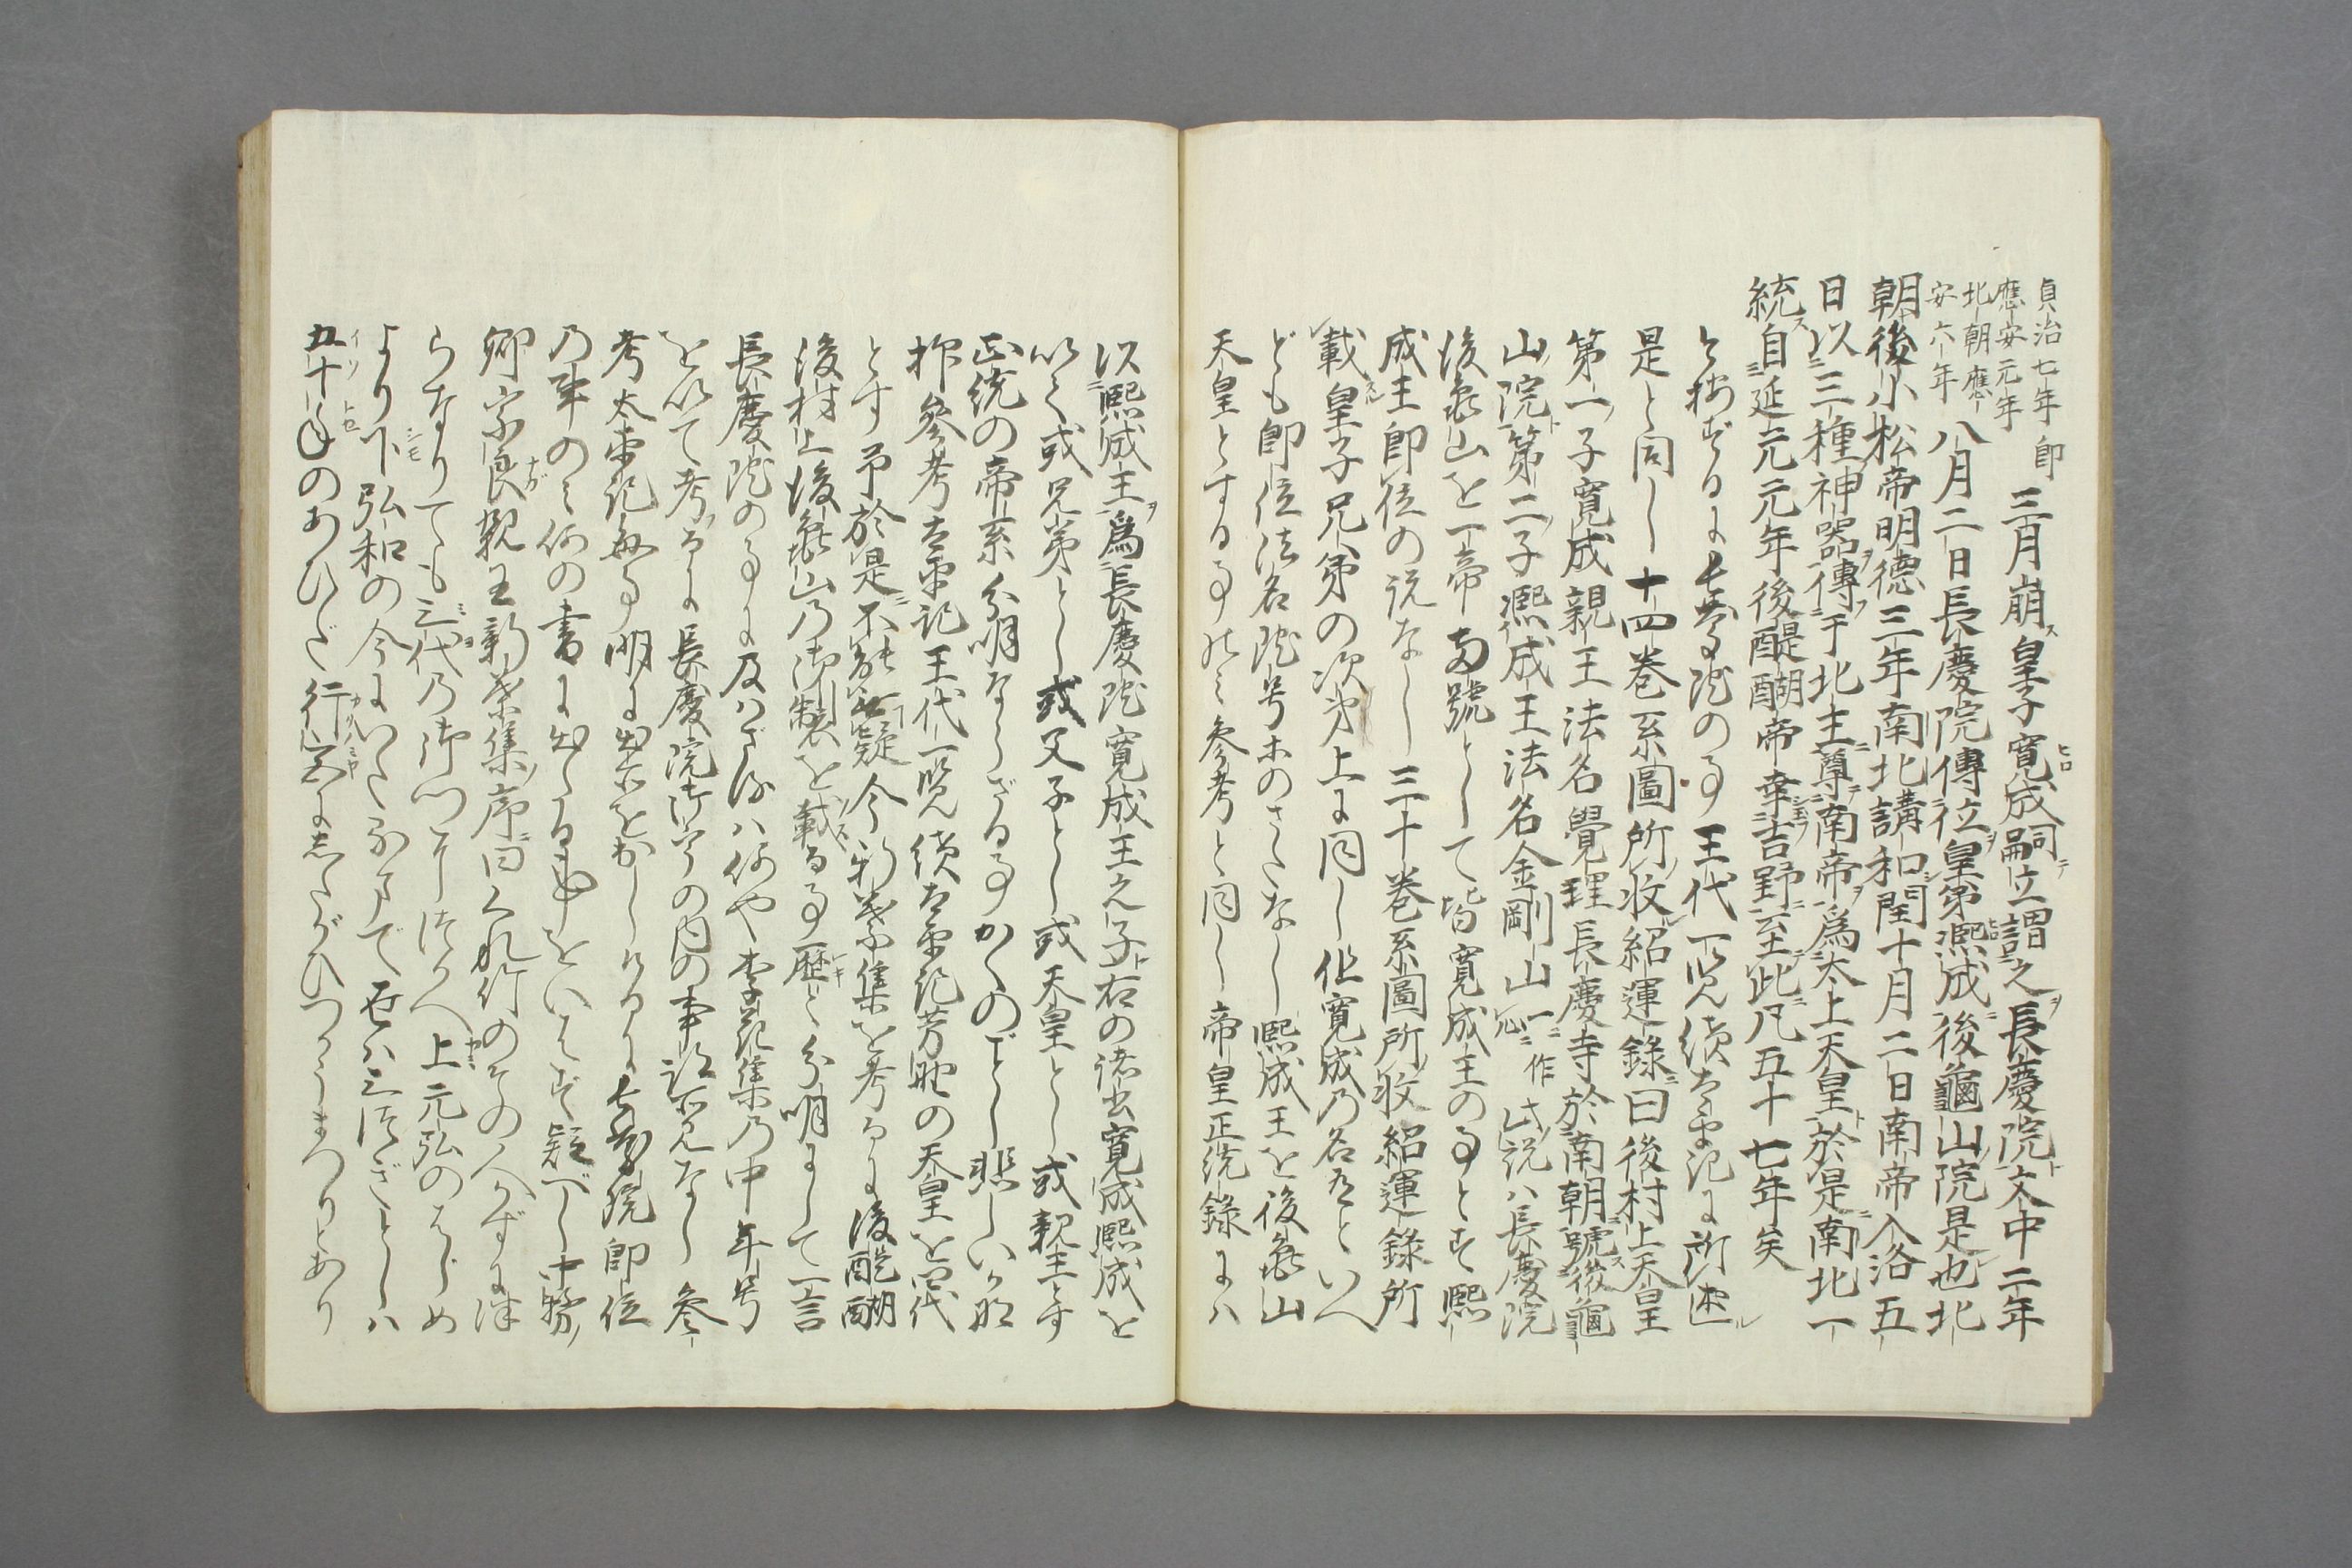 貞治七年即
應安元年三月崩皇子寛成嗣立謂之長慶院文中二年
北朝應
安六年八月二日長慶院傳位皇第熈成後龜山院是也北
朝後小松帝明德三年南北講和閏十月二日南帝入洛五
日以三種神器傳于北主尊南帝爲太上天皇於是南北一
統自延元元年後醍醐帝幸吉野至此凡五十七年矣
今按ずるに長慶院の事王代一覽續太平記に所述
是と同し十四巻系圖所收紹運錄曰後村上天皇
第一子寛成親王法名覺理長慶寺於南朝號後龜
山院第二子熈成王法名金剛山一作此説ハ長慶院
後龜山を一帝両號として皆寛成主の事とす熈
成王即位の説なし三十巻系圖所收紹運錄所
載皇子兄第の次第上に同し但寛成乃名有といへ
ども即位法名院号ホのさたなし熈成王を後龜山
天皇とする事のミ参考と同し帝皇正統錄にハ
以熈成主爲長慶院寛成主之子右の諸書寛成熈成を
以て或兄第とし或父子とし或天皇とし或親王とす
正統の帝系分明ならざる事かくのごとし悲しい哉
抑参考太平記王代一覽續太平記芳野の天皇を四代
とす予於是不能無疑今新葉集を考るに後醍醐
後村上後龜山乃御製を載る事歴と分明にして一言
長慶院の事に及ハざるハ何や李花集乃中年号
を以て考るに長慶院御宇の内の事証所見なし参
考太平記毎事明に出所をかしけるに長慶院即位
乃事のミ何の書に出たる事をいはず疑べし中務
卿宗良親王新葉集序曰くれ竹のそのゝ人かずに津
らなりても三代の御門につかへ上元弘のはじめ
より下弘和の今にいたるまで世ハミつぎとしハ
五十とせのあひだ行宮にしたがひつかうまつりとあり